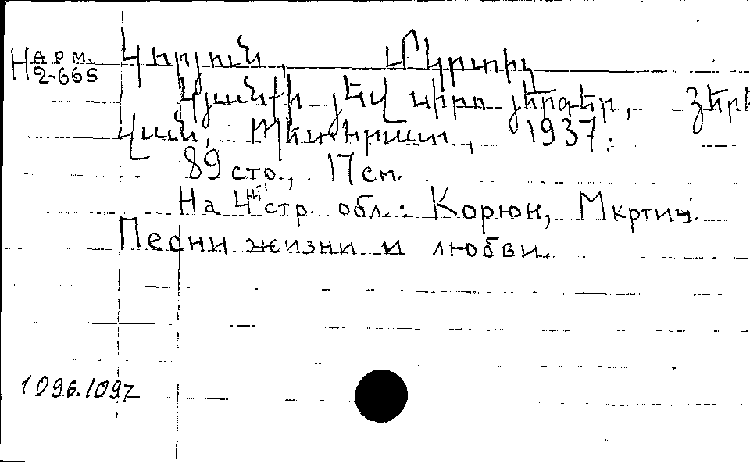 Нарм. Կորյուն, Մկրտիչ
2-665
Կյանքի յեվ սիրո յերգեր, Յերե
վան, Պետհրատ, 1937.
89 сто., 17 см.
На 4ой стр. обл.: Корюн, Мкртич.
Песни жизни и любви.
1096.1097